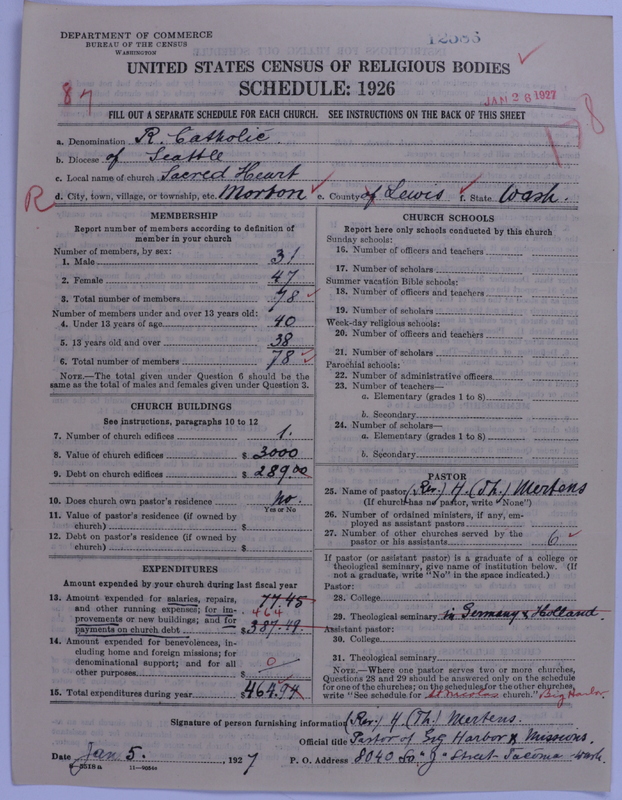 DEPARTMENT OF COMMERCE
BUREAU OF THE CENSUS
WASHINGTON
UNITED STATES CENSUS OF RELIGIOUS BODIES
SCHEDULE: 1926
87
JAN 26 1927
178
FILL OUT A SEPARATE SCHEDULE FOR EACH CHURCH. SEE INSTRUCTIONS ON THE BACK OF THIS SHEET
a. Denomination R. Catholic
b. Diocese of Seattle
c. Local name of church Sacred Heart
R d. City, town, village, or township, etc. Morton e. County of Lewis f. State Wash.
MEMBERSHIP
Report number of members according to definition of
member in your church
Number of members, by sex:
1. Male 31
2. Female 47
3. Total number of members 78
Number of members under and over 13 years old:
4. Under 13 years of age 40
5. 13 years old and over 38
6. Total number of members 78
NOTE.—The total given under Question 6 should be the
same as the total of males and females given under Question 3.
CHURCH BUILDINGS
See instructions, paragraphs 10 to 12
7. Number of church edifices 1.
8. Value of church edifices $ 3000
9. Debt on church edifices $ 289.00
10. Does church own pastor's residence No.
Yes or No
11. Value of pastor's residence (if owned by
church) $
12. Debt on pastor's residence (if owned by
church) $
EXPENDITURES
Amount expended by your church during last fiscal year
13. Amount expended for salaries, repairs, 77.45
and other running expenses; for im- 464
provements or new buildings; and for
payments on church debt $ 387.49
14. Amount expended for benevolences, in-
cluding home and foreign missions; for
denominational support; and for all 0
other purposes $
15. Total expenditures during year $ 464.94
CHURCH SCHOOLS
Report here only schools conducted by this church
Sunday schools:
16. Number of officers and teachers
17. Number of scholars
Summer vacation Bible schools:
18. Number of officers and teachers
19. Number of scholars
Week-day religious schools:
20. Number of officers and teachers
21. Number of scholars
Parochial schools:
22. Number of administrative officers
23. Number of teachers—
a. Elementary (grades 1 to 8)
b. Secondary
24. Number of scholars—
a. Elementary (grades 1 to 8)
b. Secondary
PASTOR
25. Name of pastor (Rev.) H. (Th.) Mertens
(If church has no pastor, write "None")
26. Number of ordained ministers, if any, em-
ployed as assistant pastors
27. Number of other churches served by the
pastor or his assistants 6
If pastor (or assistant pastor) is a graduate of a college or
theological seminary, give name of institution below. (If
not a graduate, write "No" in the space indicated.)
Pastor:
28. College
29. Theological seminary in Germany & Holland.
Assistant pastor:
30. College
31. Theological seminary
NOTE.—Where one pastor serves two or more churches,
Questions 28 and 29 should be answered only on the schedule
for one of the churches; on the schedules for the other churches,
write "See schedule for St Nicolas church."
Signature of person furnishing information (Rev.) H. (Th.) Mertens.
Official title Pastor of Gig Harbor & Missions.
Date Jan 5. , 1927 P. O. Address 8040 So. "J" Street Tacoma Wash.
11—9054